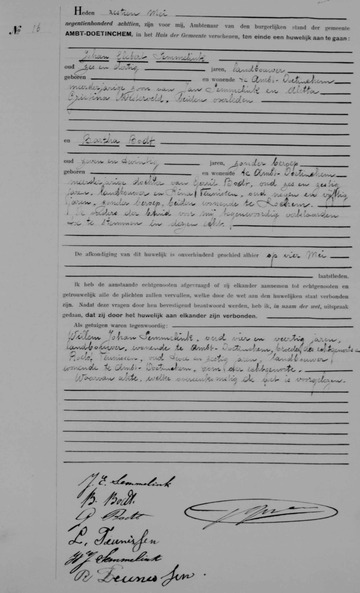 Nº 16
Heden zestien Mei
negentienhonderd achttien, zijn voor mij, Ambtenaar van den burgerlijken stand der gemeente
AMBT-DOETINCHEM, in het Huis der Gemeente verschenen, ten einde een huwelijk aan te gaan:
Johan Semmelink
oud zes en dertig jaren, landbouwer
geboren en wonende te Ambt-Doetinchem
meerderjarige zoon van Jan Semmelink en Aletta
beiden overleden
en Bartha Bodt
oud zeven en twintig jaren, zonder beroep
geboren en wonende te Ambt-Doetinchem
meerderjarige dochter van Gerrit Bodt, oud zes en zestig
jaren, landbouwer en Teunissen, oud
jaren, zonder beroep, beiden wonende te
toe te stemmen in dezen echt.
De afkondiging van dit huwelijk is onverhinderd geschied alhier op vier Mei
laatstleden.
Ik heb de aanstaande echtgenooten afgevraagd of zij elkander aannemen tot echtgenooten en
getrouwelijk alle de plichten zullen vervullen, welke door de wet aan den huwelijken staat verbonden
zijn. Nadat deze vragen door hen bevestigend beantwoord werden, heb ik, in naam der wet, uitspraak
gedaan, dat zij door het huwelijk aan elkander zijn verbonden.
Als getuigen waren tegenwoordig:
Willem Johan Semmelink, oud vier en veertig jaren,
landbouwer, wonende te Ambt-Doetinchem, broeder des echtgenoots en
Teunissen, oud jaren, landbouwer,
wonende te Ambt-Doetinchem, oom der echtgenoote.
Waarvan akte, welke overeenkomstig de wet is voorgelezen.
J. E. Semmelink
B. Bodt
G Bodt
L. Teunissen
W J Semmelink
B. Teunissen.